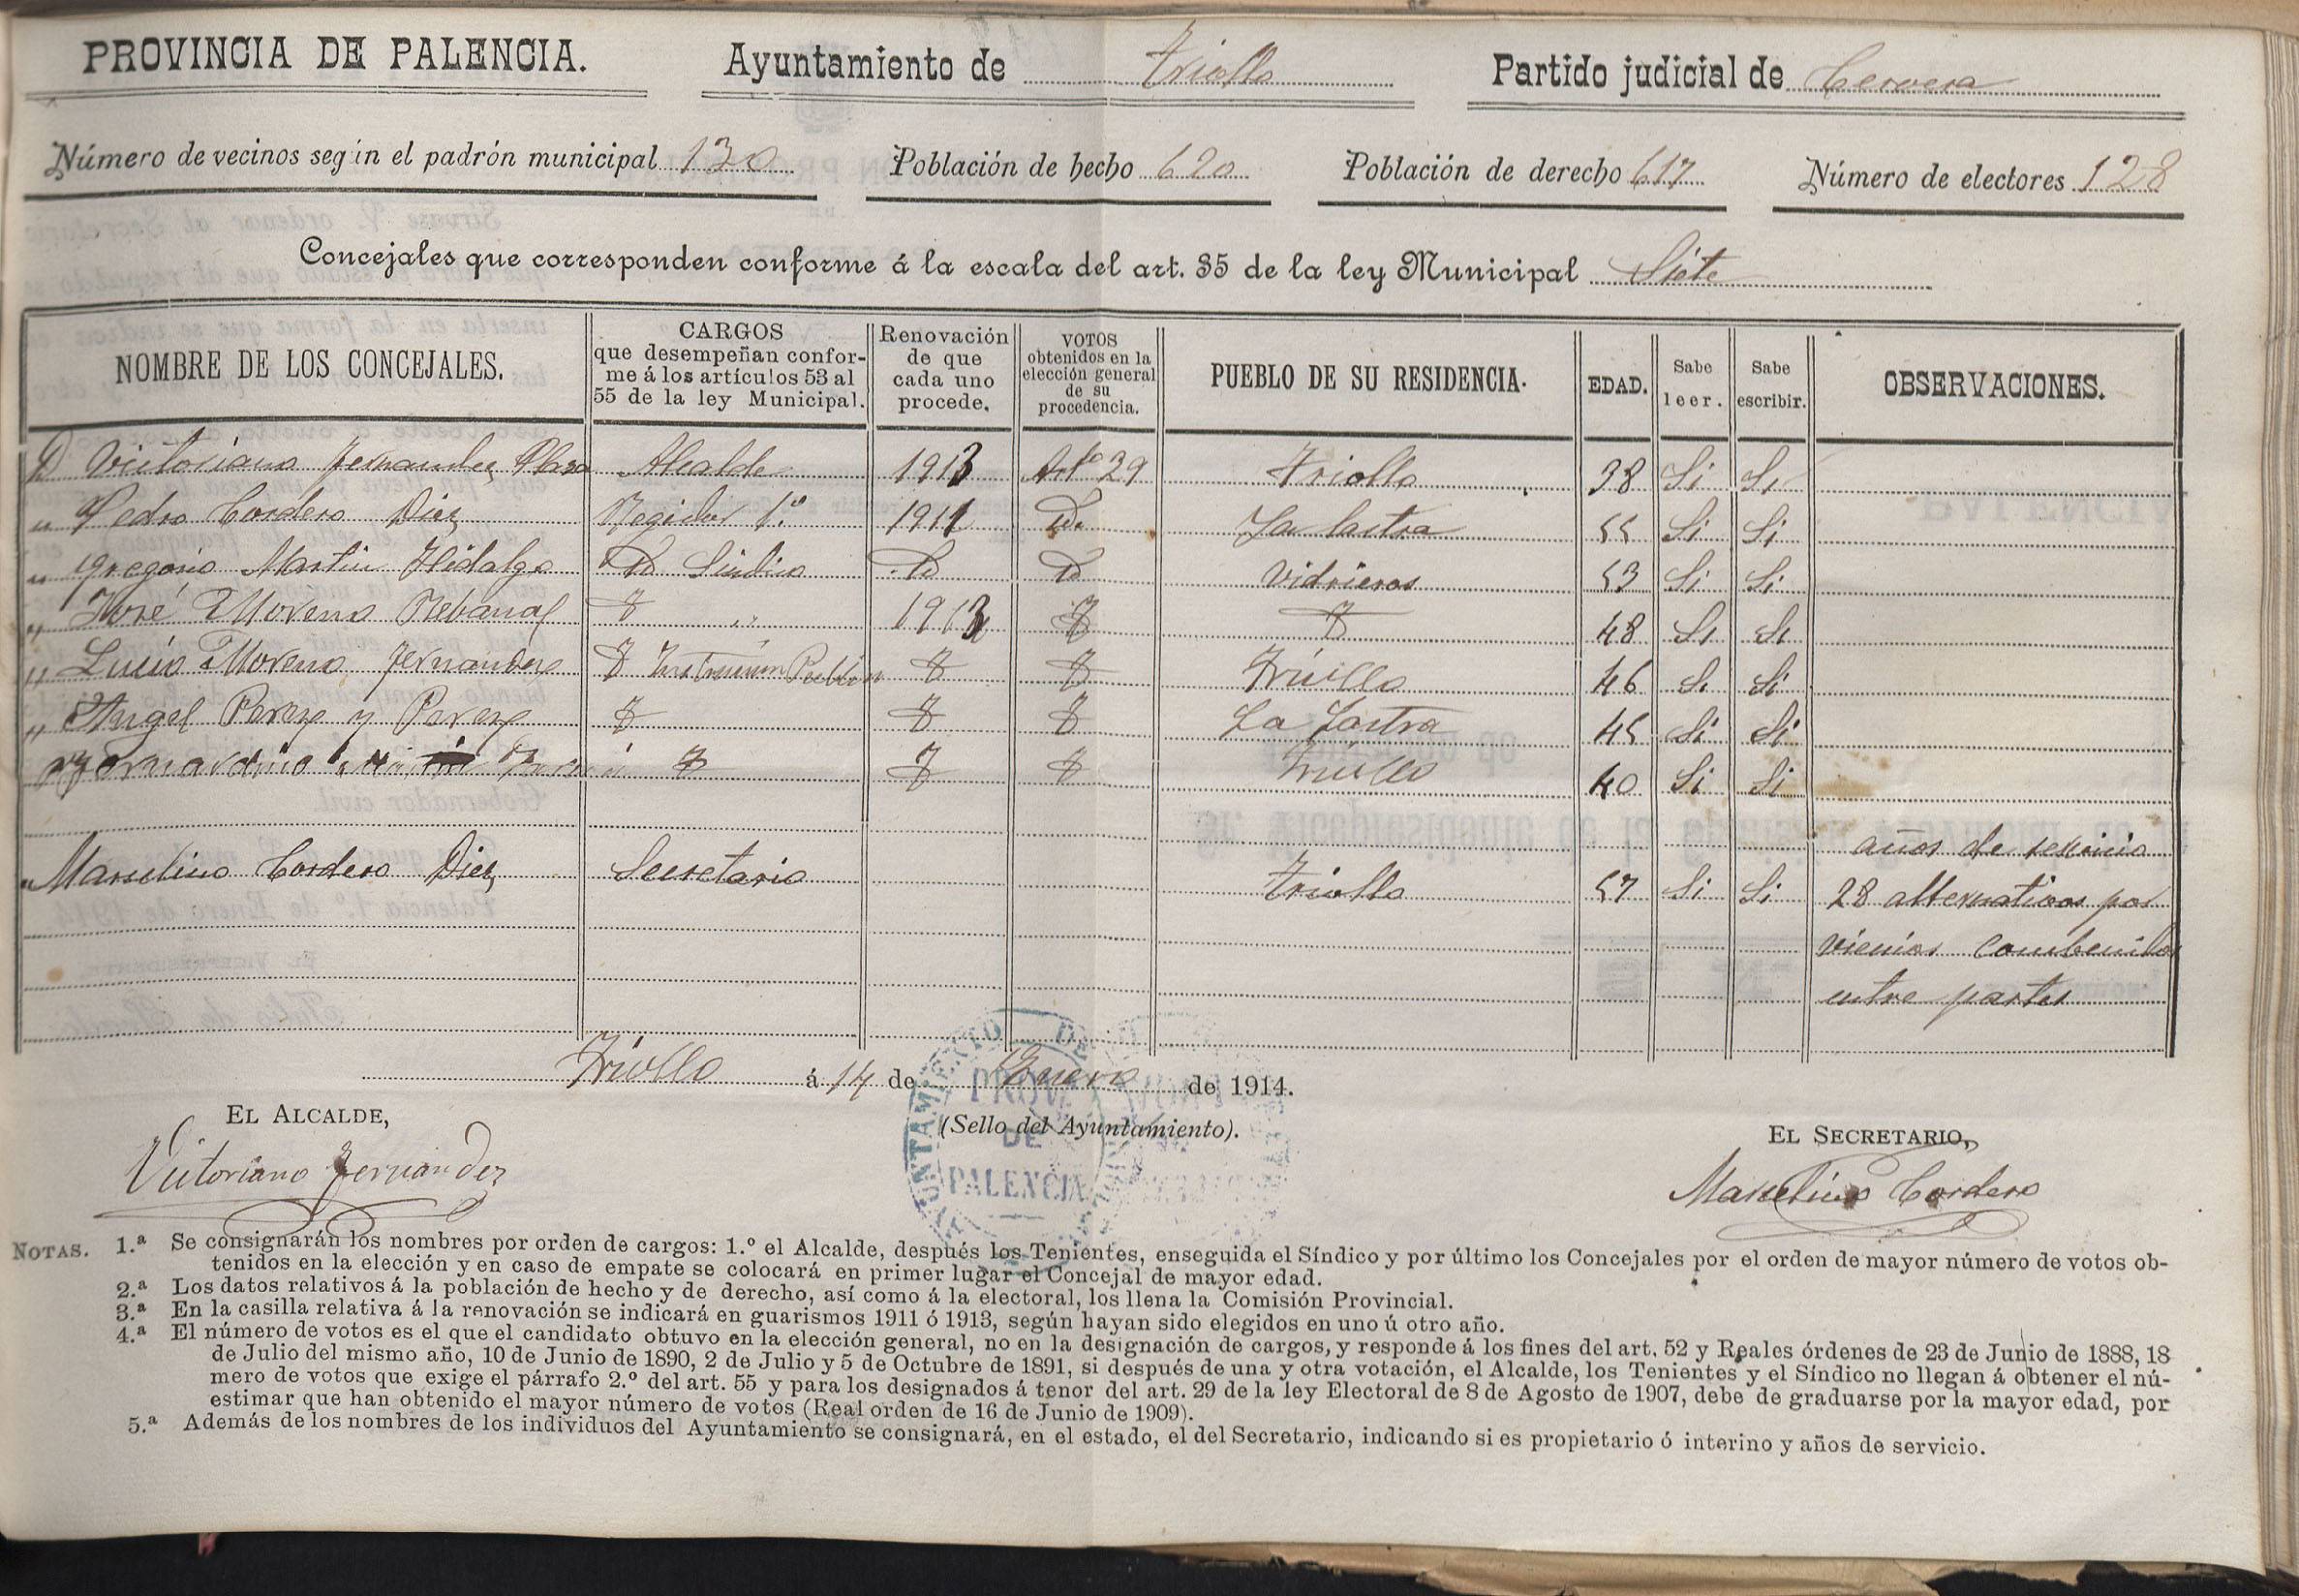 PROVINCIA DE PALENCIA. Ayuntamiento de Triollo Partido judicial de Cervera
Número de vecinos según el padrón municipal 130 Población de hecho 620 Población de derecho 617 Número de electores 128
Concejales que corresponden conforme á la escala del art. 35 de la ley Municipal Siete
NOMBRE DE LOS CONCEJALES. CARGOS que desempeñan confor-me á los artículos 53 al 55 de la ley Municipal. Renovación de que cada uno procede. VOTOS obtenidos en la elección general de su procedencia. PUEBLO DE SU RESIDENCIA. EDAD. Sabe leer. Sabe escribir. OBSERVACIONES.
D Victoriano Fernandez Plaza Alcalde 1913 Artº 29 Triollo 38 Si Si
" Pedro Cordero Diez Regidor 1.º 1911 Id. La lastra 55 Si Si
" Gregorio Martin Hidalgo Id Sindico Id Id Vidrieros 53 Si Si
" José Moreno Rebanal 1913 48 Si Si
" Lucio Moreno Fernandez Instrucion Triollo 46 Si Si
" Angel Perez y Perez La Lastra 45 Si Si
Bernardino Triollo 40 Si Si
años de servicio
" Marcelino Cordero Diez Secretario Triollo 57 Si Si 28 alternativos por
entre partes
Triollo á 14 de Enero de 1914.
EL ALCALDE, (Sello del Ayuntamiento). EL SECRETARIO,
Victoriano Fernandez Marcelino Cordero
AYUNTAMIENTO DE
PROVA
DE
PALENCIA
NOTAS. 1.ª Se consignarán los nombres por orden de cargos: 1.º el Alcalde, después los Tenientes, enseguida el Síndico y por último los Concejales por el orden de mayor número de votos ob-
tenidos en la elección y en caso de empate se colocará en primer lugar el Concejal de mayor edad.
2.ª Los datos relativos á la población de hecho y de derecho, así como á la electoral, los llena la Comisión Provincial.
3.ª En la casilla relativa á la renovación se indicará en guarismos 1911 ó 1913, según hayan sido elegidos en uno ú otro año.
4.ª El número de votos es el que el candidato obtuvo en la elección general, no en la designación de cargos, y responde á los fines del art. 52 y Reales órdenes de 23 de Junio de 1888, 18
de Julio del mismo año, 10 de Junio de 1890, 2 de Julio y 5 de Octubre de 1891, si después de una y otra votación, el Alcalde, los Tenientes y el Síndico no llegan á obtener el nú-
mero de votos que exige el párrafo 2.º del art. 55 y para los designados á tenor del art. 29 de la ley Electoral de 8 de Agosto de 1907, debe de graduarse por la mayor edad, por
estimar que han obtenido el mayor número de votos (Real orden de 16 de Junio de 1909).
5.ª Además de los nombres de los individuos del Ayuntamiento se consignará, en el estado, el del Secretario, indicando si es propietario ó interino y años de servicio.